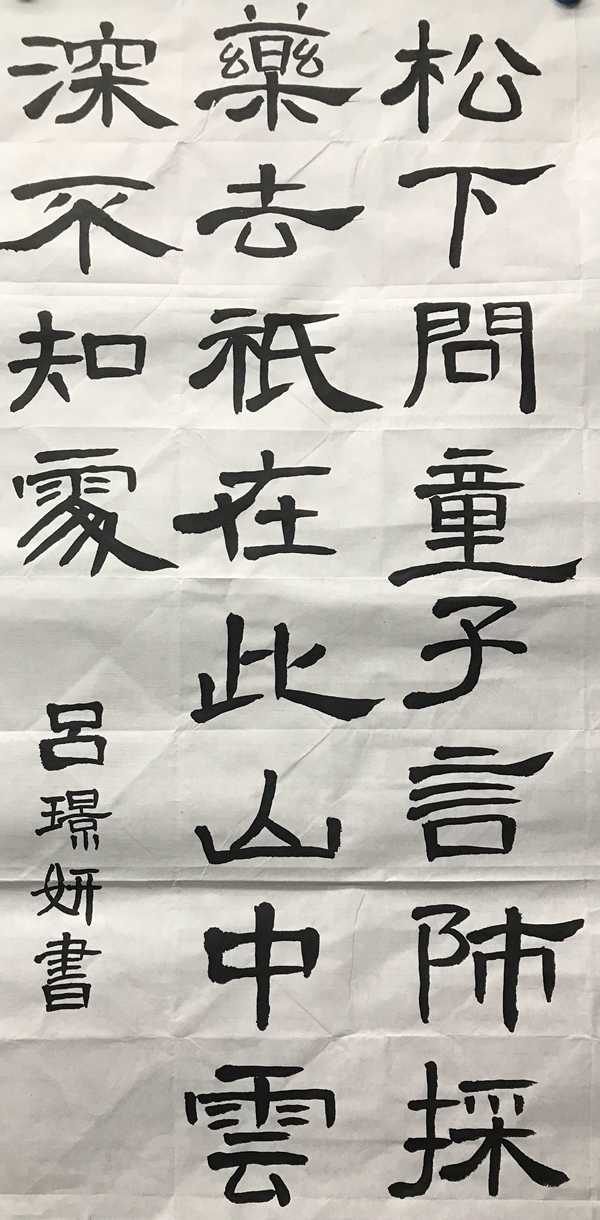 松下問童子言師採
藥去祇在此山中雲
深不知處
呂璟妍書